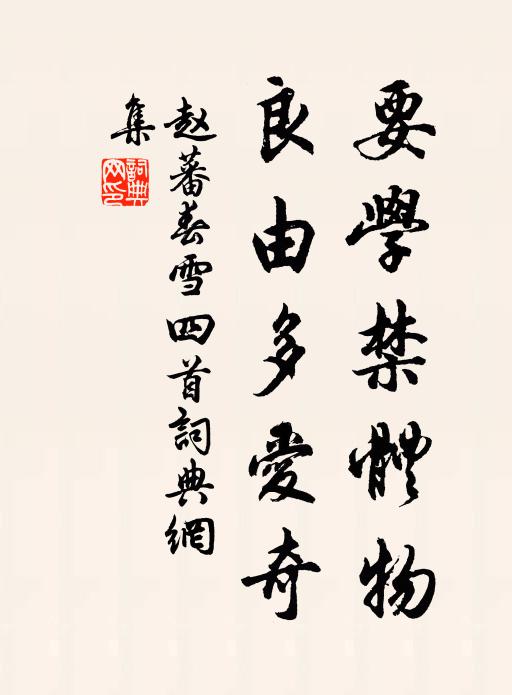 要學禁體物
良由多愛奇
赵蕃春雪四首詞典網
集
詞典
网印